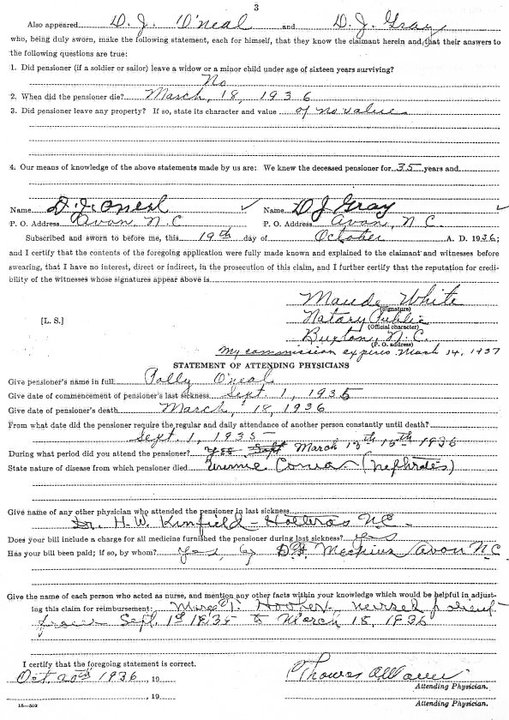 3
Also appeared D. J. O'neal and D. J. Gray
who, being duly sworn, make the following statement, each for himself, that they know the claimant herein and that their answers to
the following questions are true:
1. Did pensioner (if a soldier or sailor) leave a widow or a minor child under age of sixteen years surviving?
No
2. When did the pensioner die? March, 18, 1936
3. Did pensioner leave any property? If so, state its character and value of no value
4. Our means of knowledge of the above statements made by us are: We knew the deceased pensioner for 35 years and
Name D. J. Oneal ✓ Name D J Gray ✓
P. O. Address Avon, N. C P. O. Address Avon, N C.
Subscribed and sworn to before me, this 19th day of October A. D. 1936;
and I certify that the contents of the foregoing application were fully made known and explained to the claimant and witnesses before
swearing, that I have no interest, direct or indirect, in the prosecution of this claim, and I further certify that the reputation for credi-
bility of the witnesses whose signatures appear above is
Maude White
(Signature)
[L. S.] Notary Public
(Official character)
Buxton, N. C.
(P. O. address)
My commission expires March 14, 1937
STATEMENT OF ATTENDING PHYSICIANS
Give pensioner's name in full Polly O'neal
Give date of commencement of pensioner's last sickness Sept. 1, 1935
Give date of pensioner's death March, 18, 1936
From what date did the pensioner require the regular and daily attendance of another person constantly until death?
Sept. 1, 1935
During what period did you attend the pensioner? March 13th 15th 1936
State nature of disease from which pensioner died Coma
Give name of any other physician who attended the pensioner in last sickness
Dr. H. W. Hatteras N. C.
Does your bill include a charge for all medicine furnished the pensioner during last sickness? yes
Has your bill been paid; if so, by whom? yes, by Avon N C.
Give the name of each person who acted as nurse, and mention any other facts within your knowledge which would be helpful in adjust-
ing this claim for reimbursement: nursed patient
from Sept. 1st to March 18, 1936
I certify that the foregoing statement is correct.
Oct 20th 1936, 19
Thomas
Attending Physician.
, 19
Attending Physician.